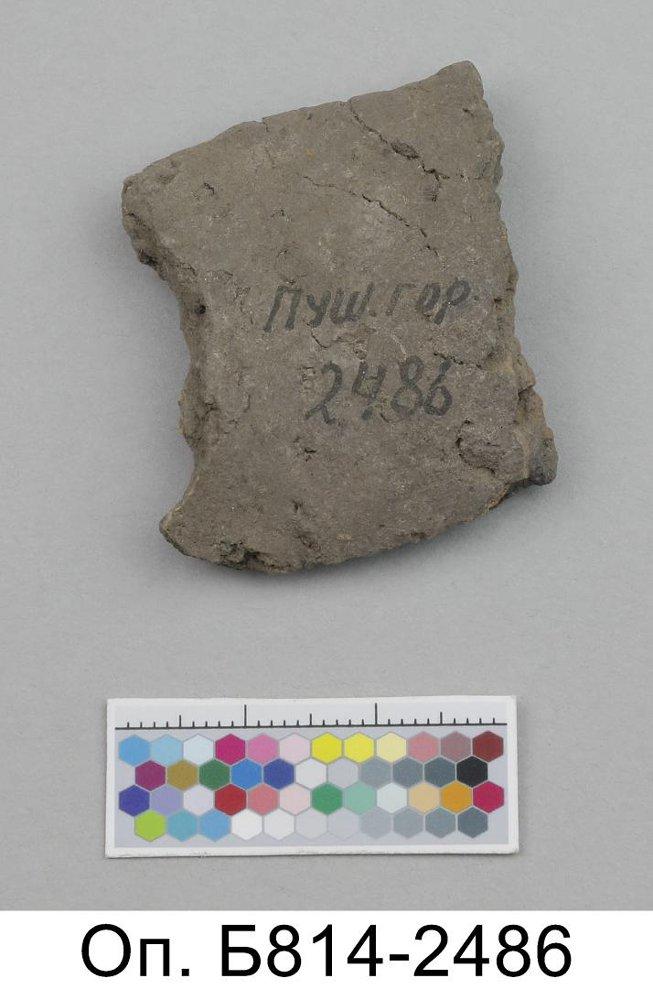 Пуш. гор.
2486
Оп. Б814-2486